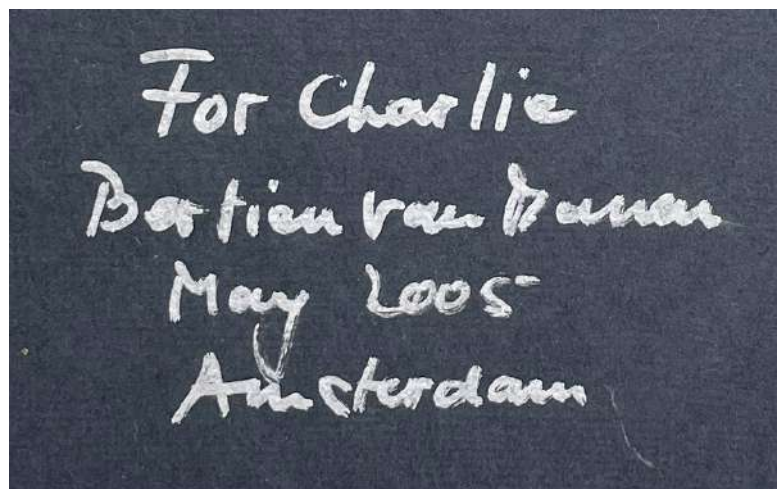 For Charlie
Bertien van Manen
May 2005
Amsterdam